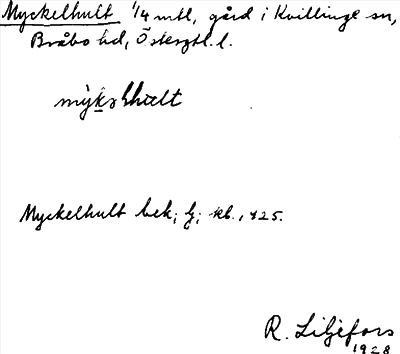 Myckelhult 1/4 mtl, gård i Kvillinge sn,
Bråbo hd, Östergtl. l.
Myckelhult bek; j; kb., 425.
R. Liljefors
1928